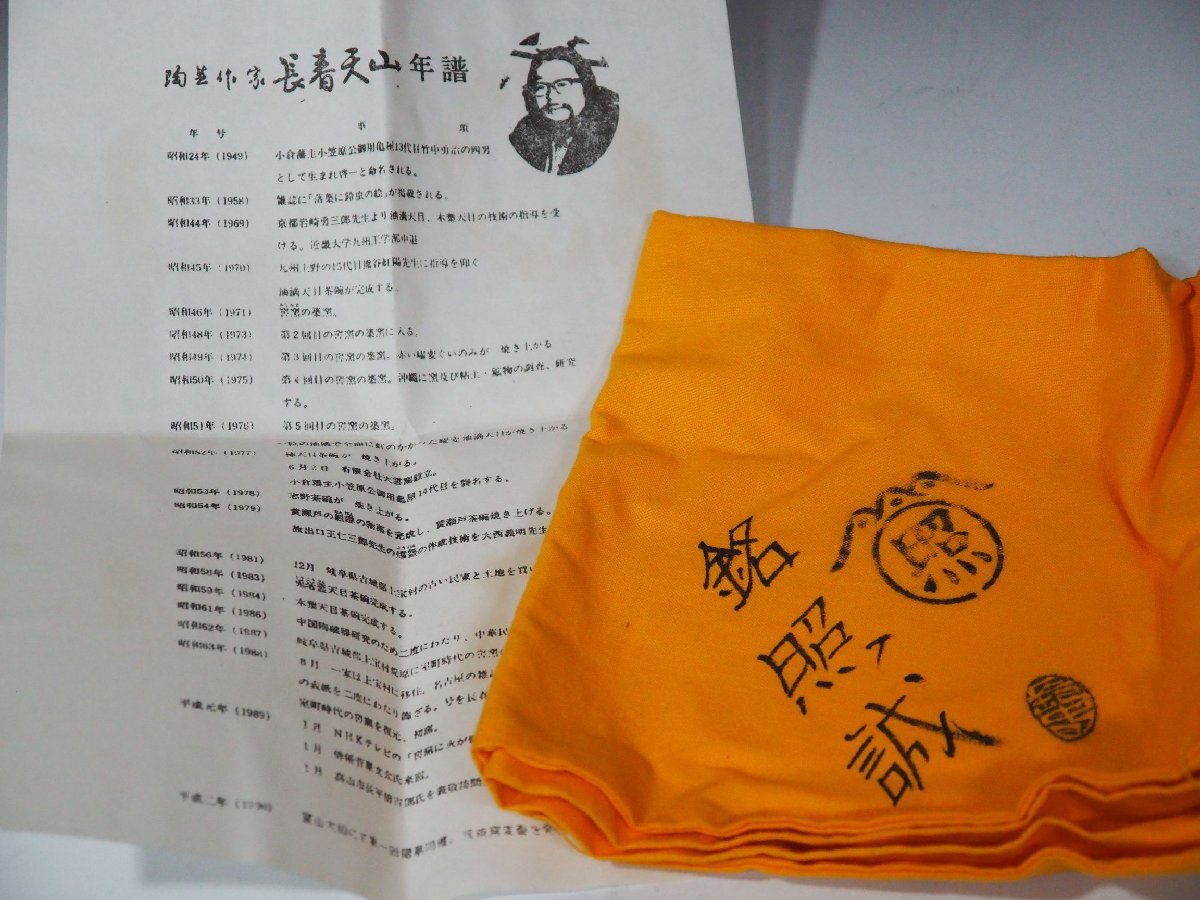 陶芸作家 長春天山年譜
年号 事項
昭和24年(1949) 小倉藩主小笠原公御用亀 13代目竹中勇治の四男
として生まれ啓一と命名される。
昭和33年(1958) 雑誌に「落葉に鈴虫の絵」が掲載される。
昭和44年(1969) 京都岩崎勇三郎先生より油滴天目、木葉天目の技術の指導を受
ける。近畿大学九州工学部中退
昭和45年(1970) 九州上野の15代目熊谷紅陽先生に指導を仰ぐ
油滴天目茶碗が完成する。
昭和46年(1971) 窖窯の築窯。
昭和48年(1973) 第2回目の窖窯の築窯に入る。
昭和49年(1974) 第3回目の窖窯の築窯。赤い曜変ぐいのみが 焼き上がる
昭和50年(1975) 第4回目の窖窯の築窯。沖縄に窯及び粘土・鉱物の調査、研究
する。
昭和51年(1976) 第5回目の窖窯の築窯。
昭和52年(1977) 天目茶碗が 焼き上がる。
6月2日 有限会社天 設立。
小倉藩主小笠原公御用 14代目を襲名する。
昭和53年(1978) 志野茶碗が 焼き上がる。
昭和54年(1979) 黄瀬戸の を完成し、黄瀬戸茶碗焼き上げる。
故出口王仁三郎先生の の作成技術を大西義明先生
昭和56年(1981) 12月 岐阜県吉城郡上宝村の古い民家と土地を買い
昭和58年(1983) 天目茶碗完成する。
昭和59年(1984) 木葉天目茶碗完成する。
昭和61年(1986) 中国陶磁器研究のため二度にわたり、中華民
昭和62年(1987) 岐阜県吉城郡上宝村 原に室町時代の窖窯の
昭和63年(1988) 8月 一家は上宝村に移住。名古屋の雑誌
の表紙を二度にわたり飾ざる。号を長春
室町時代の窖窯を復元、初窯。
平成元年(1989) 1月 NHKテレビの「窖窯に火が
1月 俳優菅原文太氏来 。
1月 高山市長平田吉郎氏を表敬訪問
平成二年(1990)
照
銘
照
誠